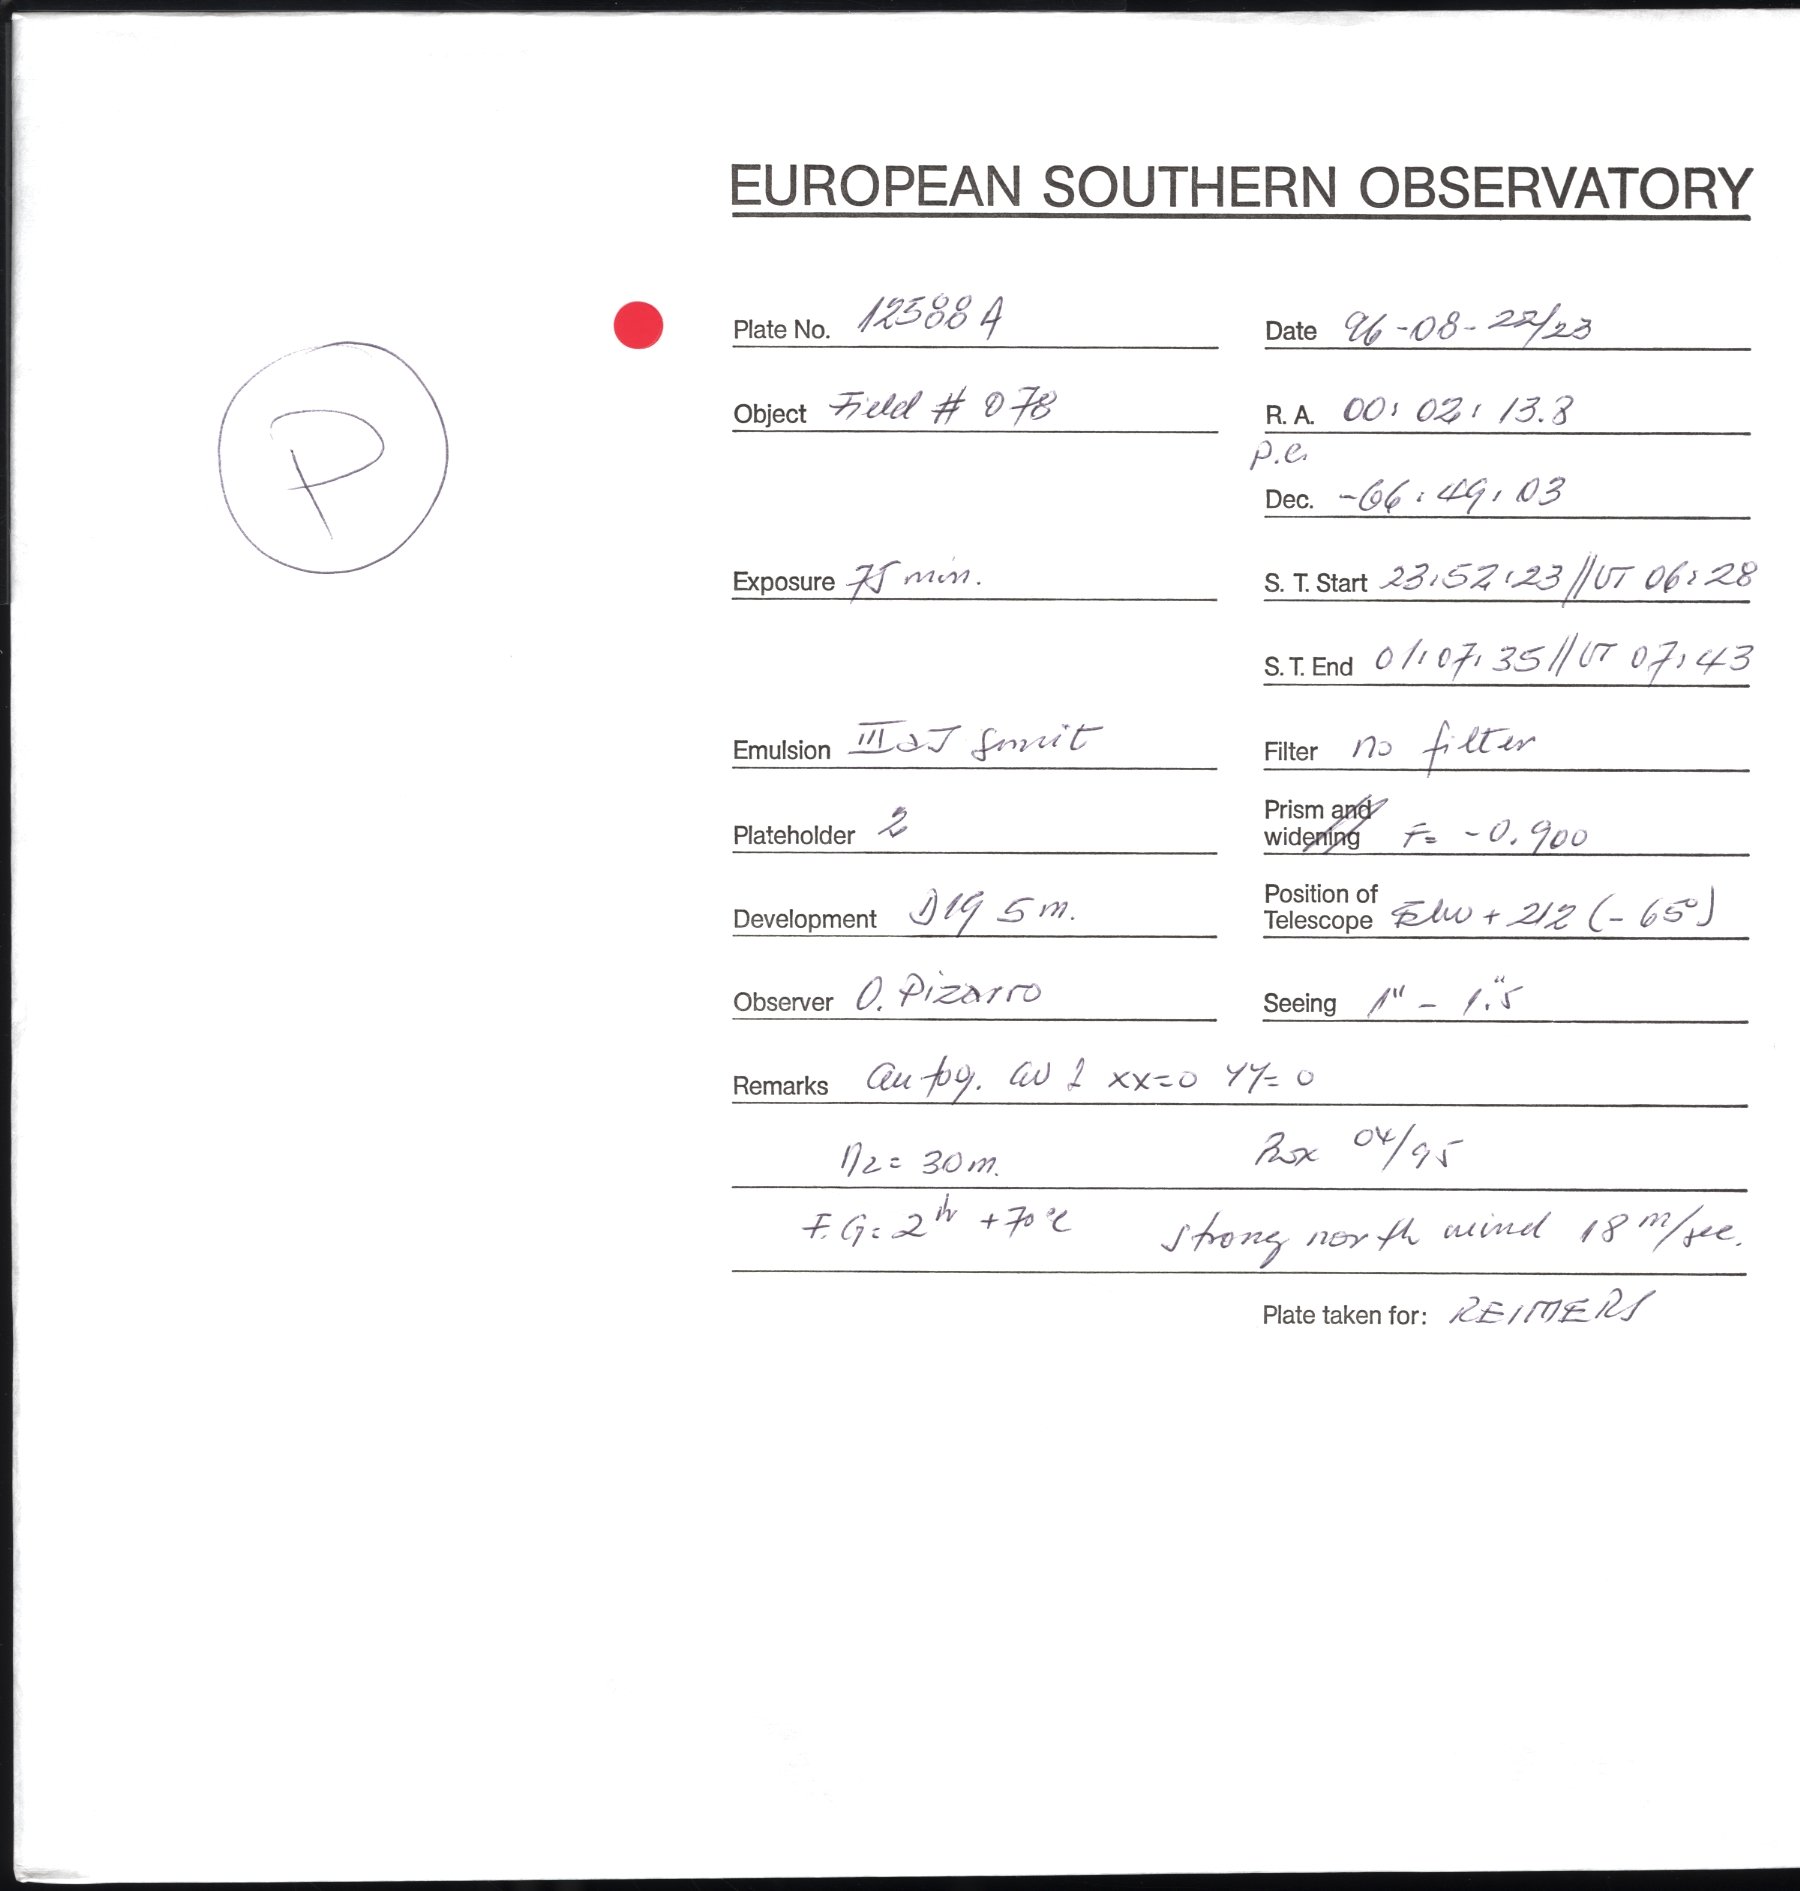 EUROPEAN SOUTHERN OBSERVATORY
P
Plate No. 12588 A
Date 96-08-22/23
Object Field # 078
R. A. 00: 02: 13.8
p.e.
Dec. -66: 49: 03
Exposure 75 min.
S. T. Start 23:52:23 // UT 06:28
S. T. End 01:07:35 // UT 07:43
Emulsion IIIaJ
Filter no filter
Plateholder 2
Prism and widening F= -0.900
Development D19 5m.
Position of Telescope +212 (-65°)
Observer O. Pizarro
Seeing 1" - 1."5
Remarks xx=0 yy=0
N2= 30m. 04/95
F.G= 2hr +70°C strong north wind 18 m/sec.
Plate taken for: REIMERS